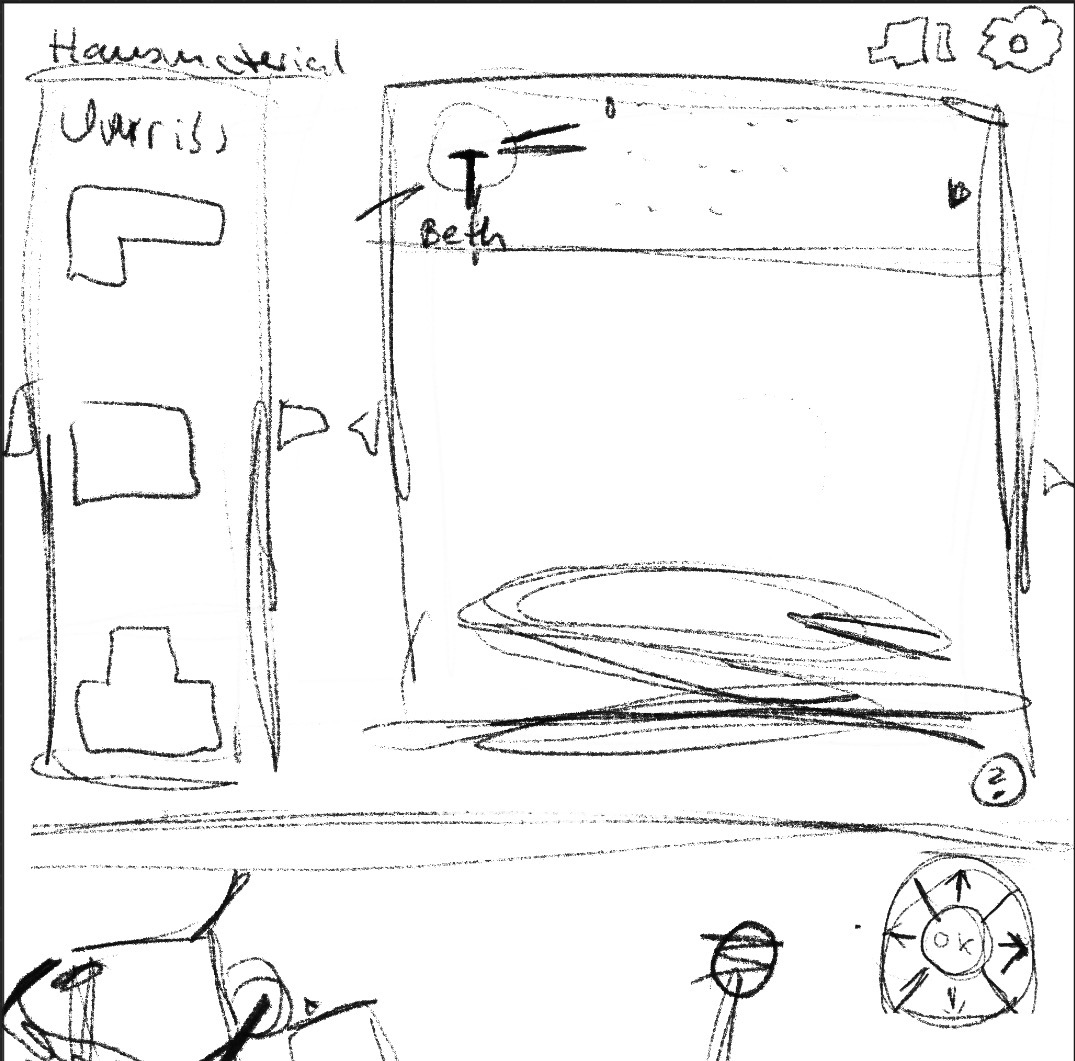 Hausmaterial
Umriss
Beth
?
OK